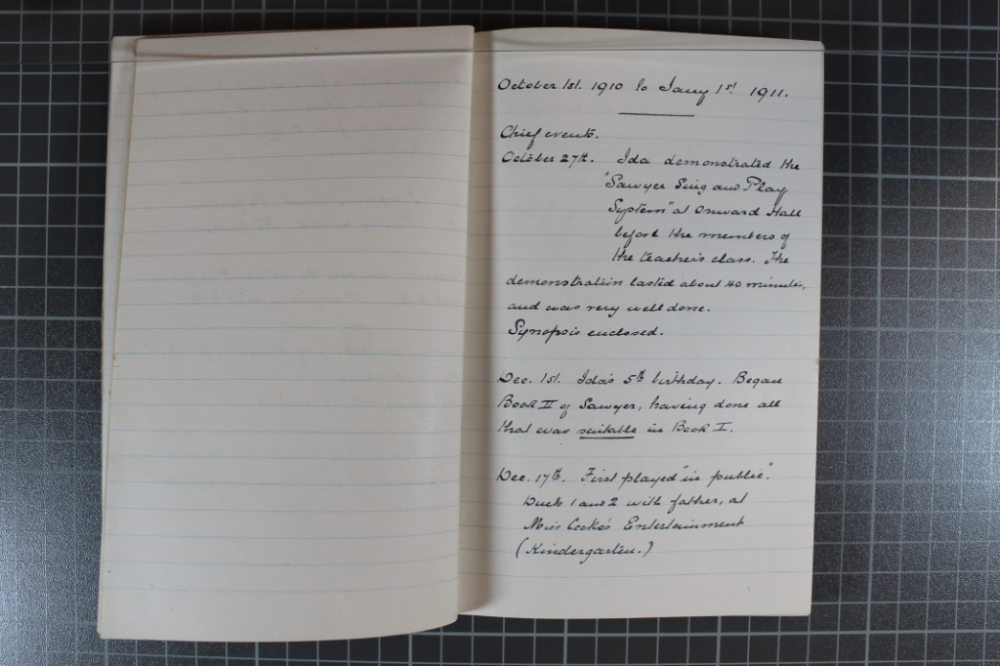 October 1st. 1910 to Jany 1st 1911.
Chief events.
October 27th. Ida demonstrated the
"Sawyer Sing and Play
System" at Onward Hall
before the members of
the teacher's class. The
demonstration lasted about 40 minutes,
and was very well done.
Synopsis enclosed.
Dec. 1st. Ida's 5th birthday. Began
Book II of Sawyer, having done all
that was suitable in Book I.
Dec. 17th. First played "in public".
Duets 1 and 2 with father, at
Miss Cooke's Entertainment
(Kindergarten.)